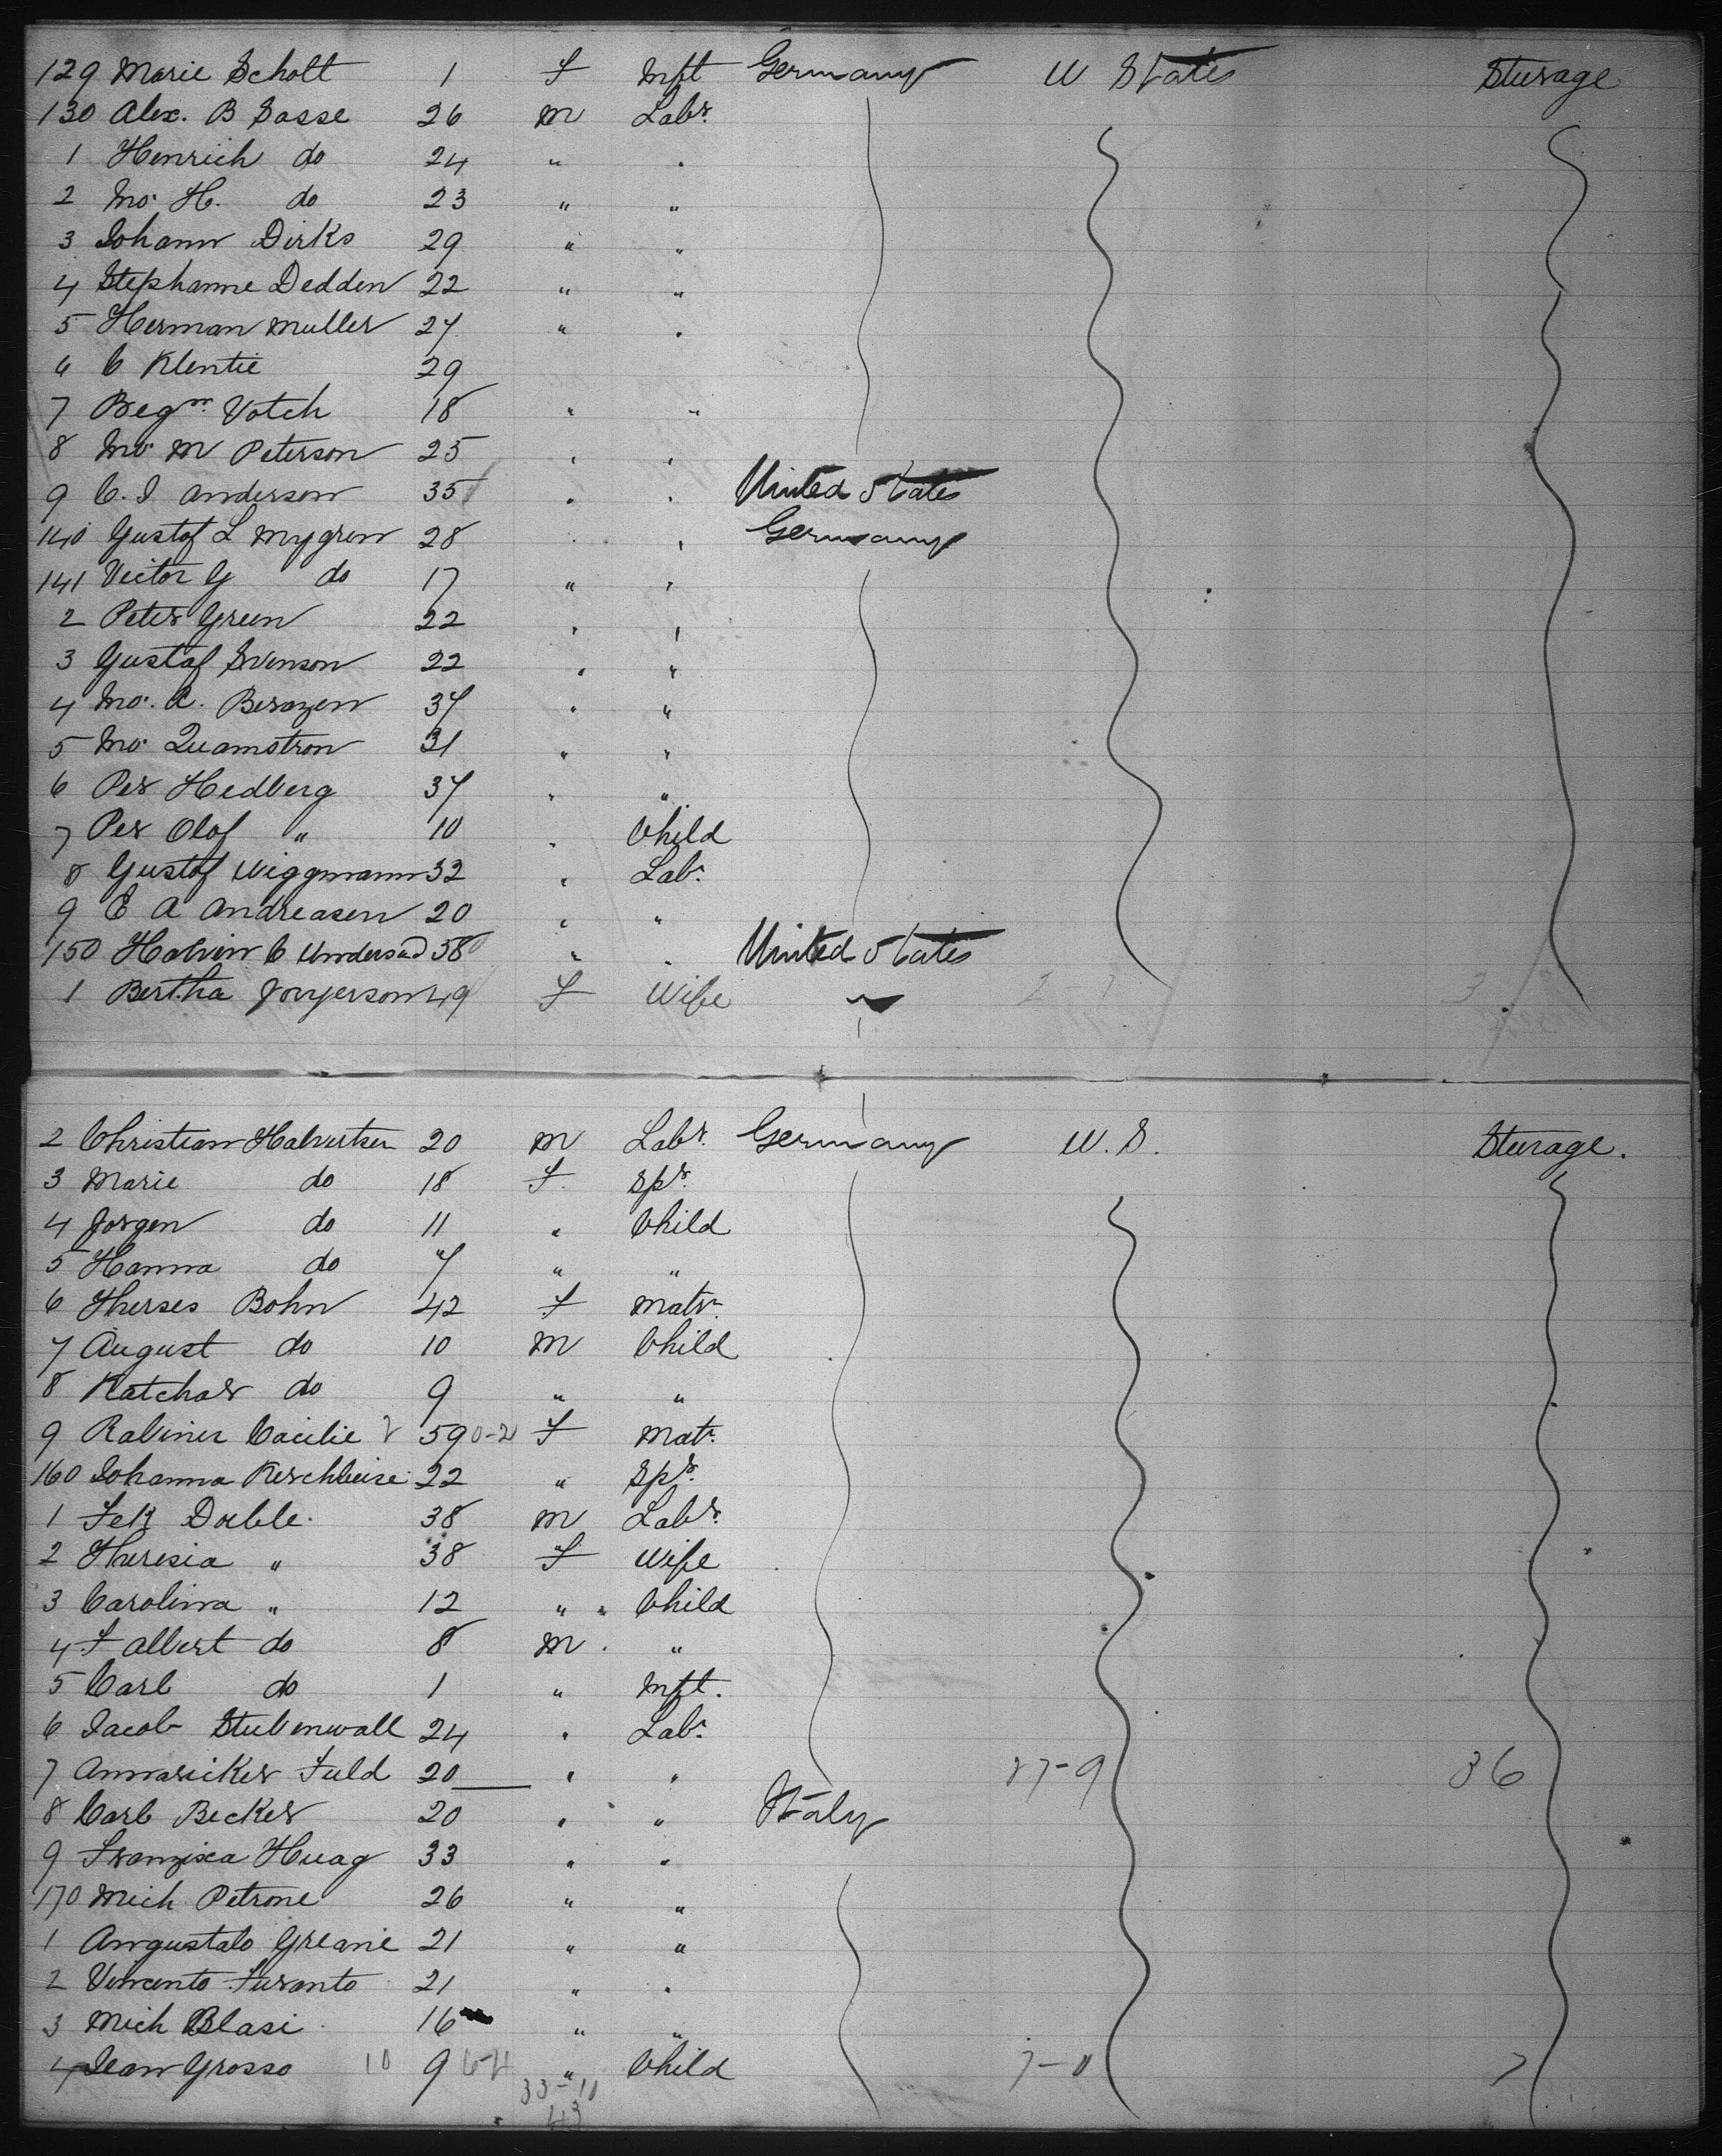 129 Marie Scholt 1 F Inft Germany U States Sturage
130 Alex. B Sasse 26 M Labr.
1 Henrich do 24 " .
2 Mo. H. do 23 " "
3 Johann Dirks 29 " "
4 Stephanne Dedden 22 " "
5 Herman Muller 27 " .
6 C Klentie 29
7 Begm. Votch 18 " "
8 Mo. M Peterson 25 " "
9 C. J. Anderson 35 " " United States
140 Gustof L Mygren 28 " Germany
141 Victor G do 17 " "
2 Peter Green 22 " "
3 Gustaf Svenson 22 " "
4 Mo. A. Berozen 37 " "
5 Mo. Quamstron 31 " "
6 Per Hedberg 37 " "
7 Per Olof " 10 " Child
8 Gustof Wiggmann 32 " Labr.
9 E A Andreasen 20 " "
150 Halvin C 58 " " United States
1 Bertha Jorgerson 49 F Wife "
2 Christian Halvertsen 20 M Labr. Germany U.S. Sturage.
3 Marie do 18 F. Spr.
4 Jorgen do 11 " Child
5 Hanna do 7 " "
6 Therses Bohn 42 F Matr.
7 August do 10 M Child
8 Katchar do 9 " "
9 Rabiner Cacilie 59 0-2 F Mat.
160 Johanna 22 " Spr.
1 Fek Doelle. 38 M Labr.
2 Theresia " 38 F Wife
3 Carolina " 12 " " Child
4 F Albert do 8 M. "
5 Carl do 1 " Inft.
6 Jacob Stubenwall 24 " Labr.
7 Annaricker Fuld 20 " " 27-9 36
8 Carl Becker 20 " " Italy
9 Franzisca Huag 33 " "
170 Mich Petrone 26 " "
1 Angustalo Greanie 21 " "
2 Vincento Furanto 21 " .
3 Mich Blasi 16 " "
4 Jean Grosso 10 9 " Child 7-0 7
33-10
43